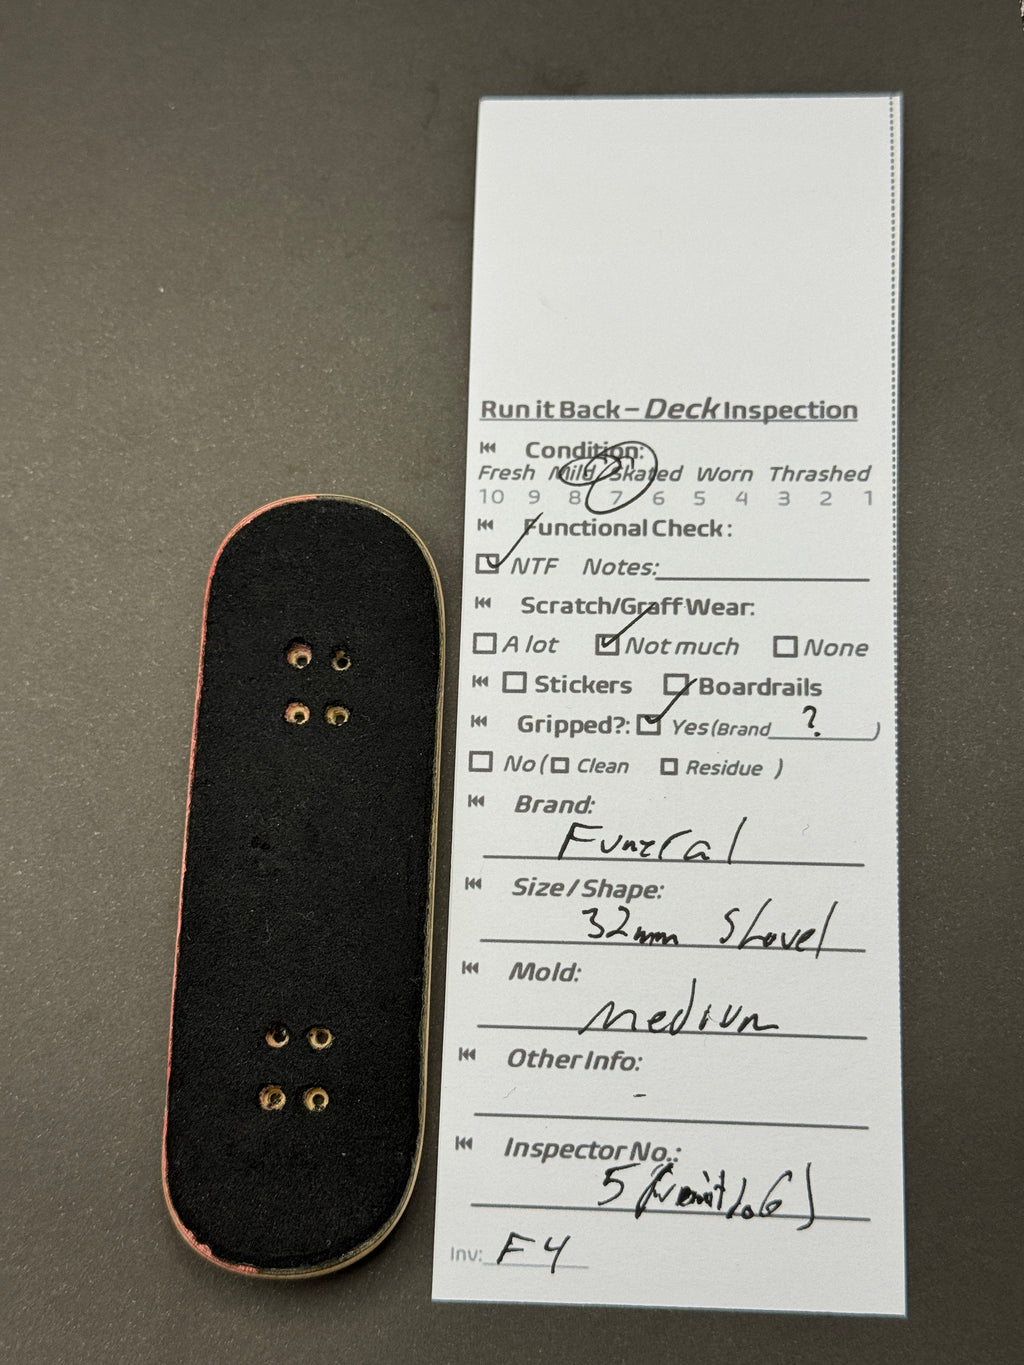 Run it Back – Deck Inspection
Condition:
Fresh Mild Skated Worn Thrashed
10 9 8 7 6 5 4 3 2 1
Functional Check:
NTF Notes:
Scratch/Graff Wear:
A lot Not much None
Stickers Boardrails
Gripped?: Yes (Brand ? )
No ( Clean Residue )
Brand:
Funeral
Size/Shape:
32mm Shovel
Mold:
Medium
Other Info:
-
Inspector No.:
5
Inv: F4